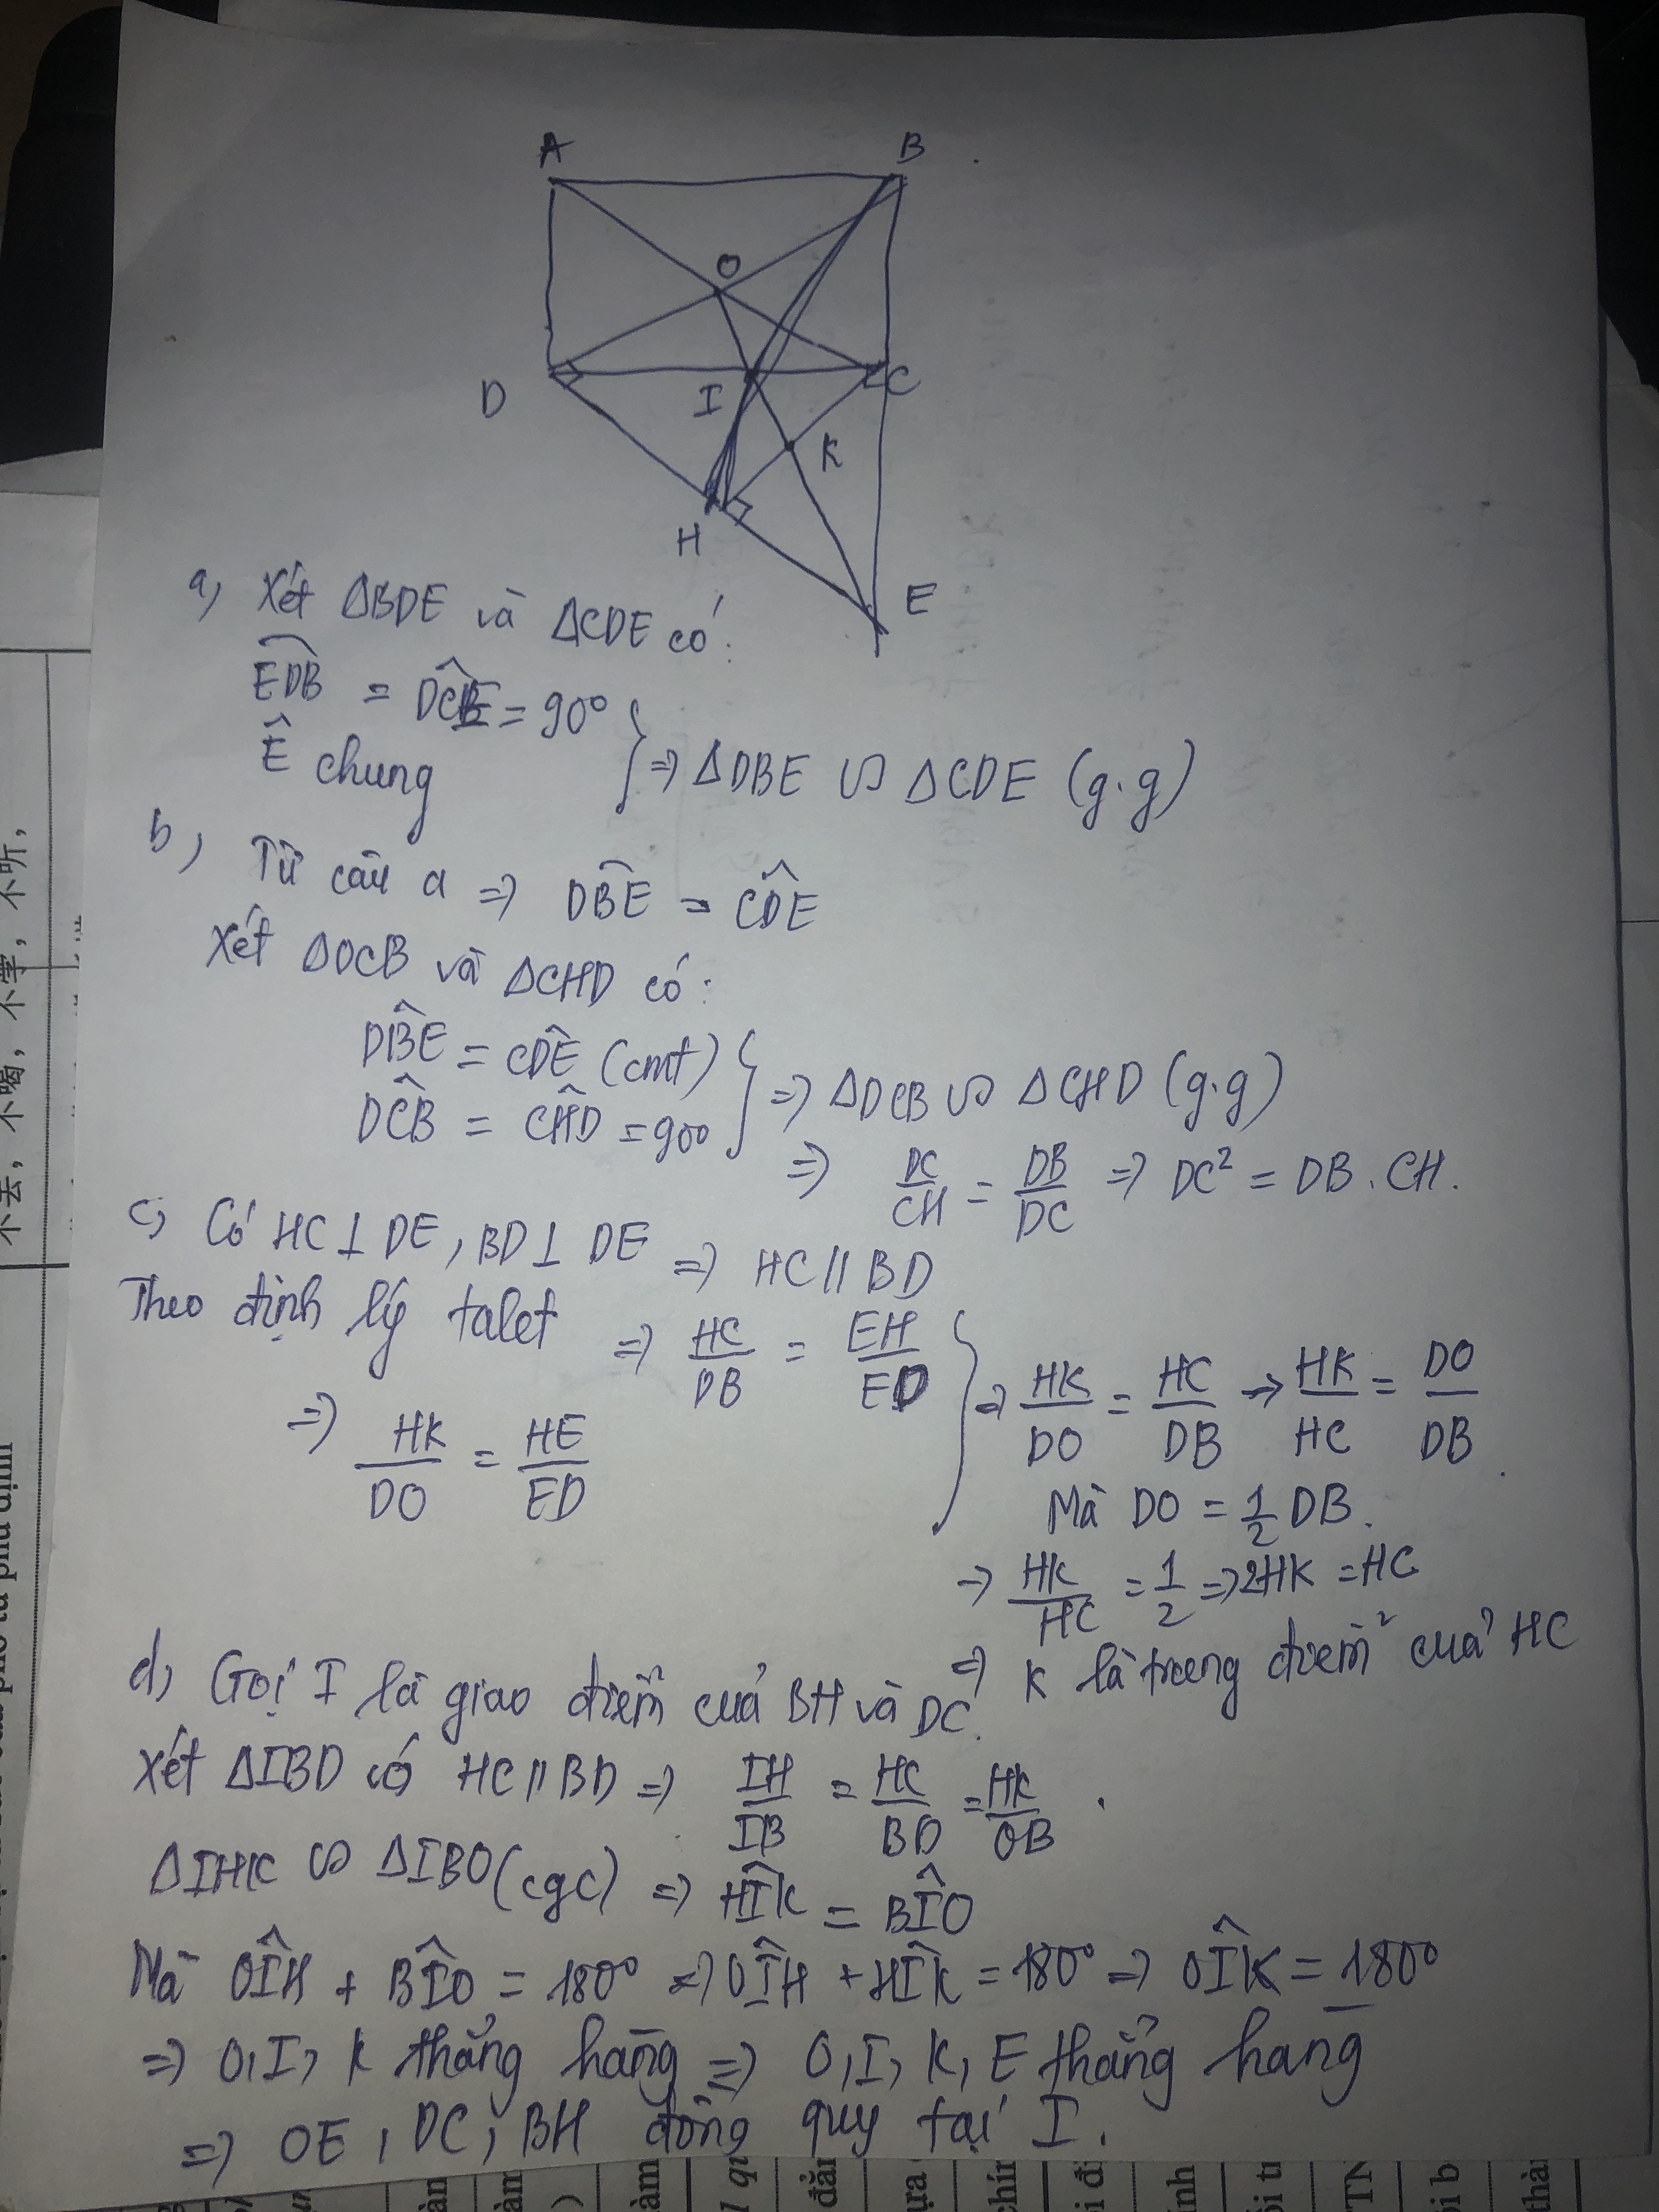 A B
O
D I C
K
H
E
a, Xét ΔBDE và ΔCDE có:
EDB̂ = DĈE = 90°
Ê chung } => ΔDBE ∽ ΔCDE (g.g)
b, Từ câu a => DB̂E = CD̂E
Xét ΔDCB và ΔCHD có:
DB̂E = CD̂E (cmt)
DĈB = CĤD = 90° } => ΔDCB ∽ ΔCHD (g.g)
=> DC/CH = DB/DC => DC² = DB . CH.
c, Có HC ⊥ DE, BD ⊥ DE => HC // BD
Theo định lý talet => HC/DB = EH/ED
=> HK/DO = HE/ED } => HK/DO = HC/DB => HK/HC = DO/DB
Mà DO = 1/2 DB.
=> HK/HC = 1/2 => 2HK = HC
=> K là trung điểm của HC
d, Gọi I là giao điểm của BH và DC.
Xét ΔIBD có HC // BD => IH/IB = HC/BD = HK/OB .
ΔIHK ∽ ΔIBO (cgc) => HÎK = BÎO
Mà OÎH + BÎO = 180° => OÎH + HÎK = 180° => OÎK = 180°
=> O, I, K thẳng hàng => O, I, K, E thẳng hang
=> OE, DC, BH đồng quy tại I.
不去，不喝，不掌，不听，